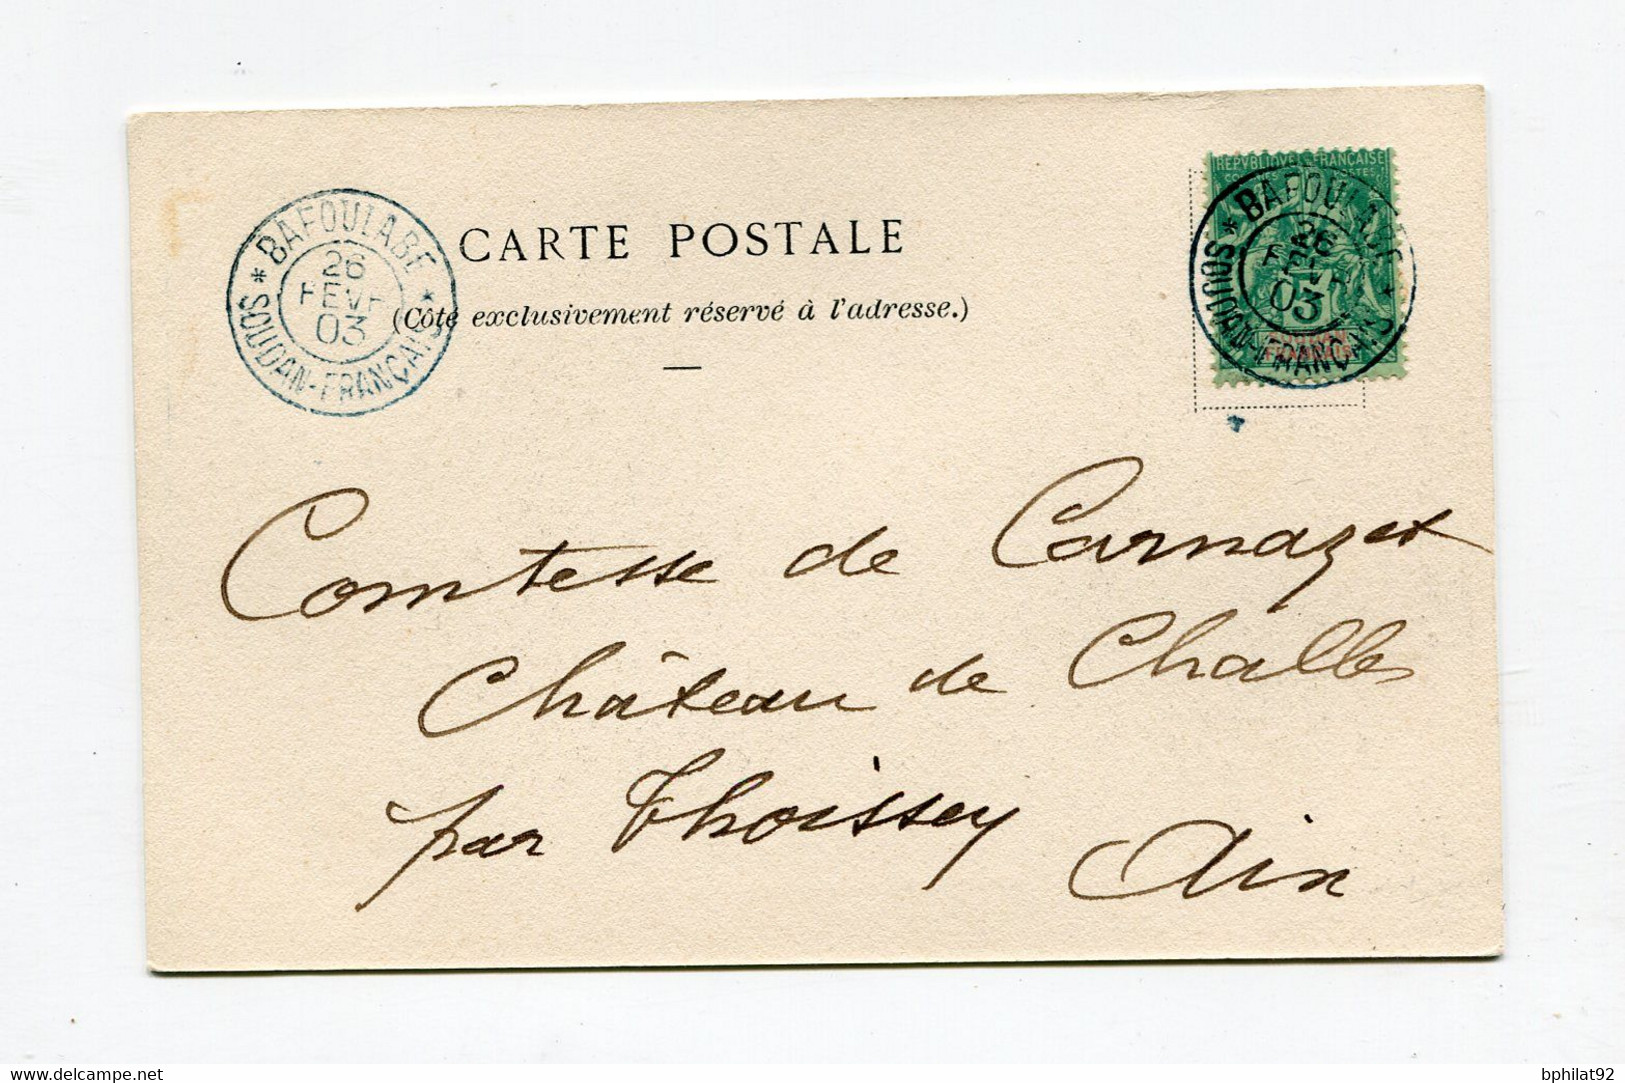 BAFOULABE
26
FEVR
03
* SOUDAN-FRANÇAIS *
CARTE POSTALE
(Côté exclusivement réservé à l'adresse.)
REPVBLIQVE FRANÇAISE
POSTES
BAFOULABE
26
03
* SOUDAN-FRANÇAIS *
SOUDAN
FRANÇAIS
Comtesse de Carnazet
Château de Challes
par Thoissey
Ain
delcampe.net
bphilat92